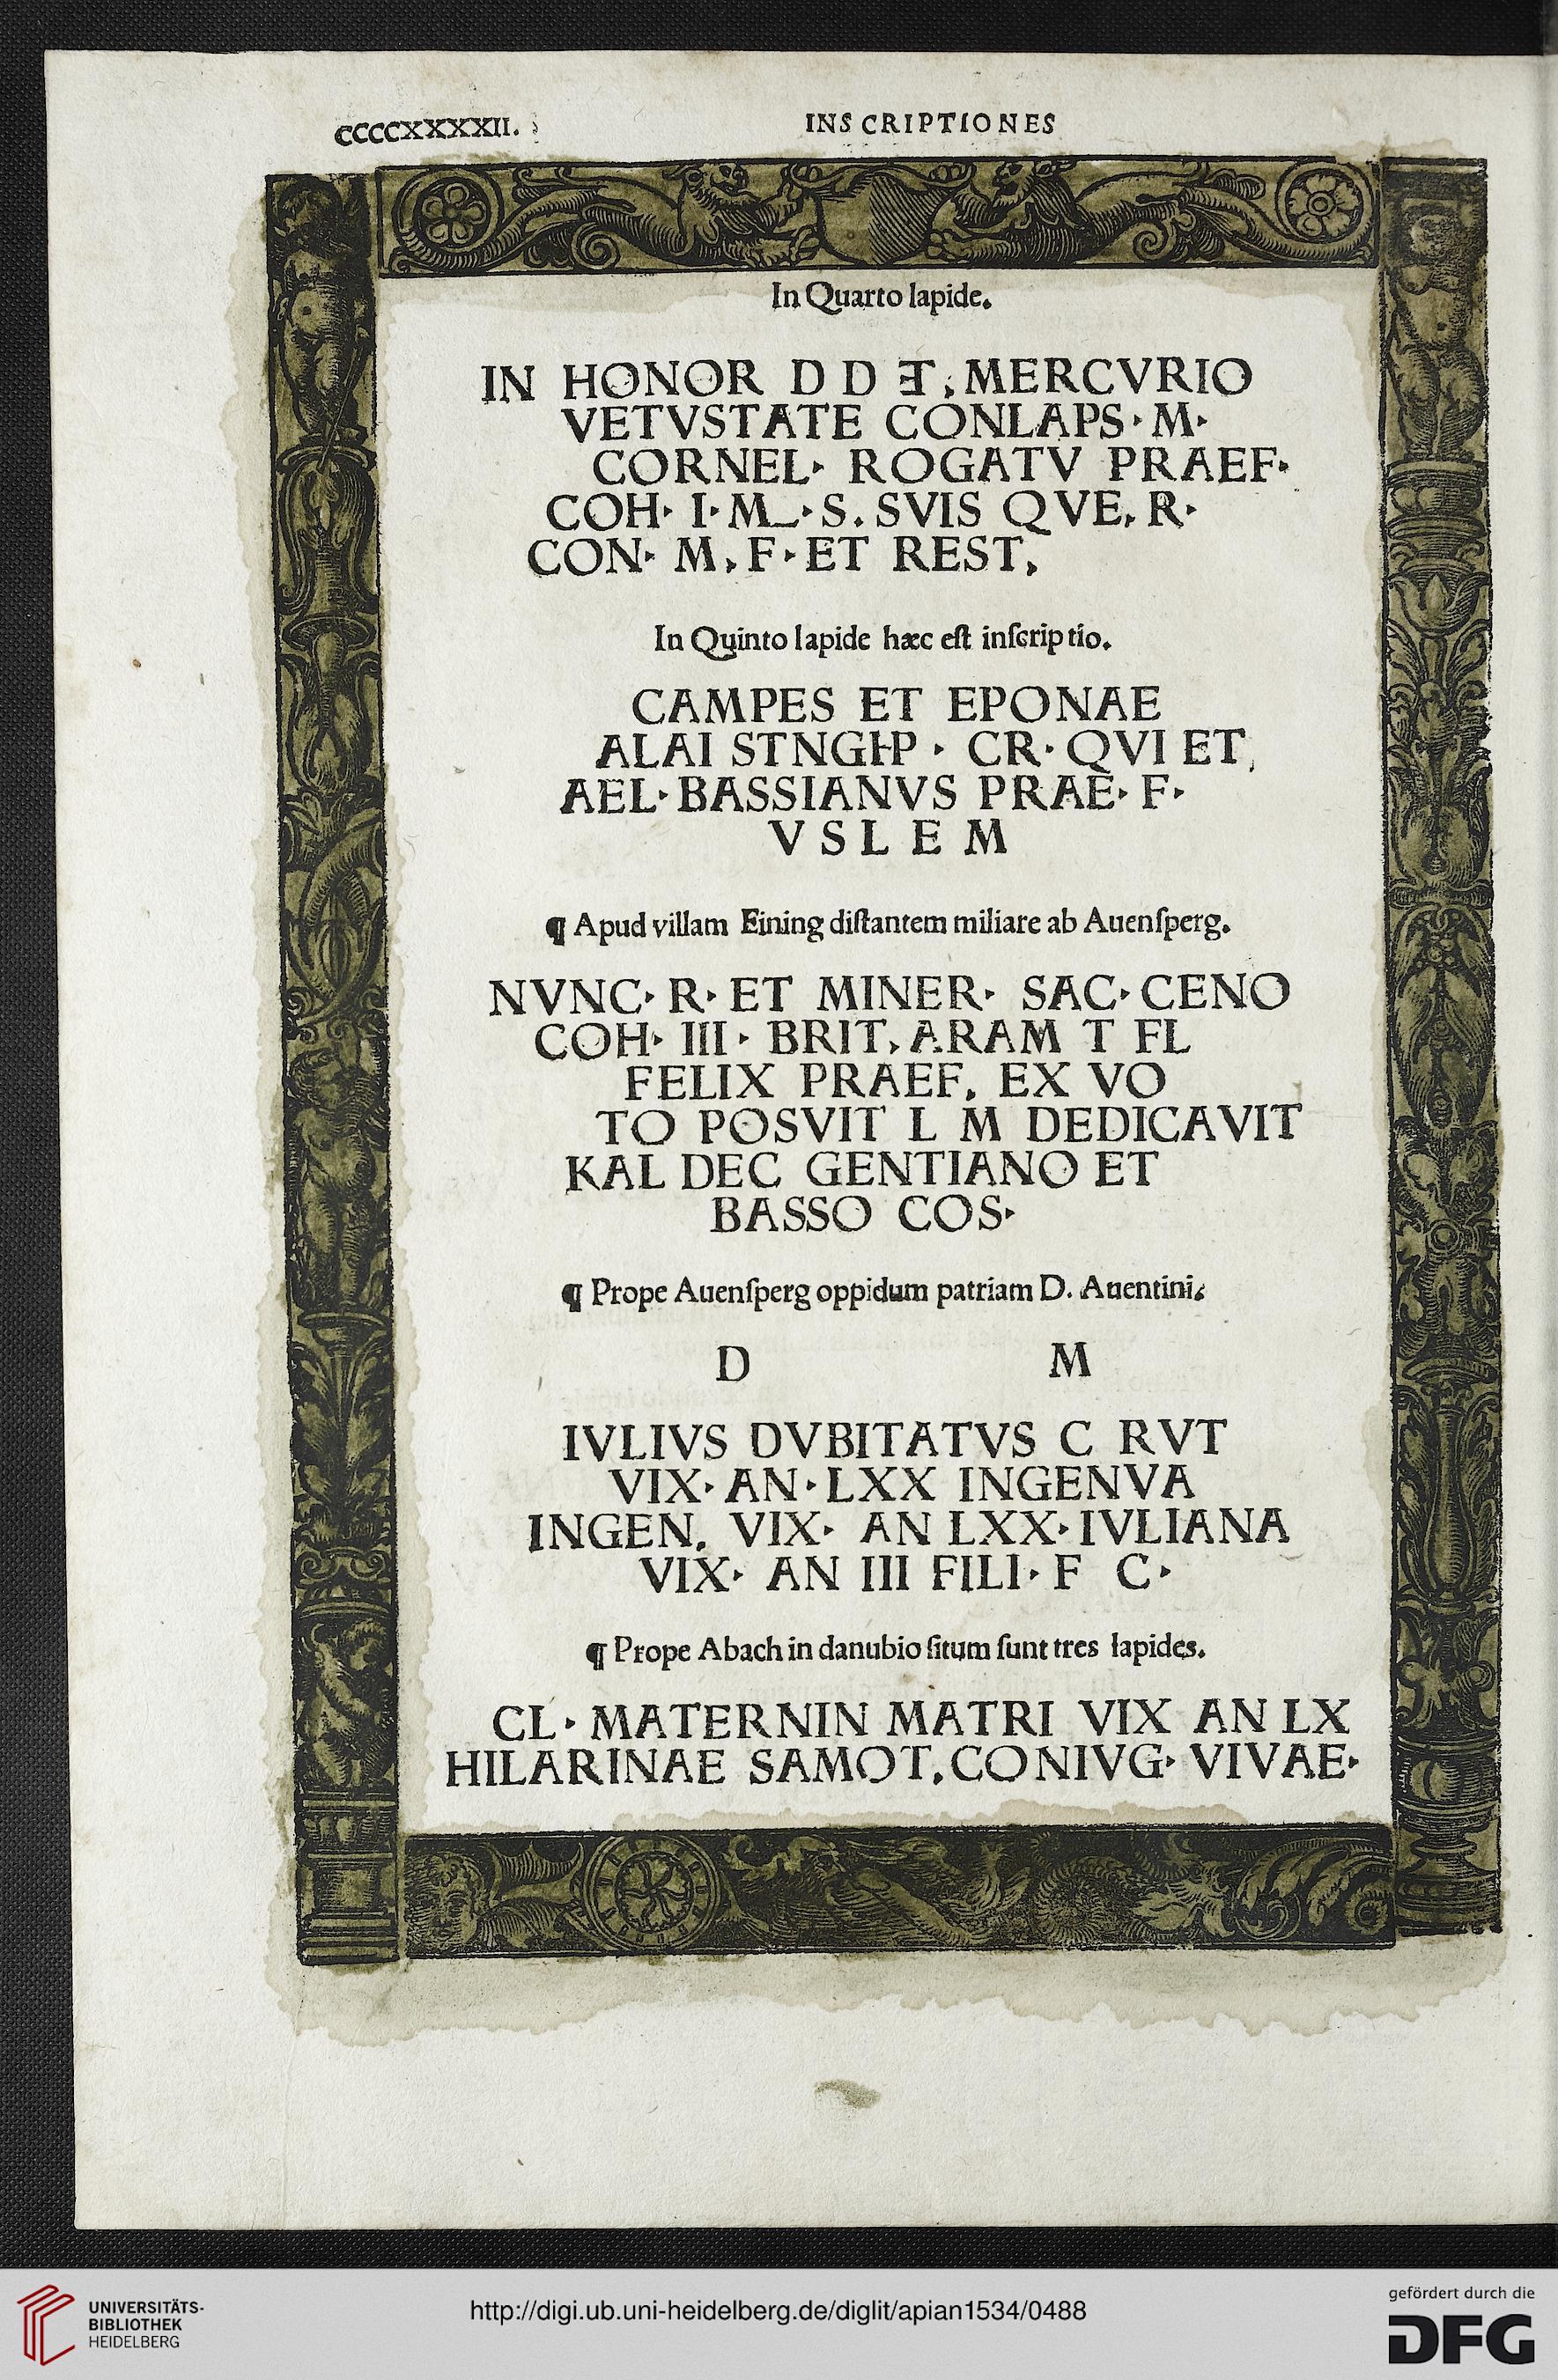 CCCCXXXXII.
INSCRIPTIONES
In Quarto lapide.
IN HONOR D D ƎT, MERCVRIO
VETVSTATE CONLAPS· M·
CORNEL· ROGATV PRAEF·
COH· I· M_· S. SVIS QVE, R·
CON· M, F· ET REST,
In Quinto lapide hæc eſt inſcriptio.
CAMPES ET EPONAE
ALAI STNGHP · CR· QVI ET,
AEL· BASSIANVS PRAE· F·
V S L E M
¶ Apud villam Eining diſtantem miliare ab Auenſperg.
NVNC· R· ET MINER· SAC· CENO
COH· III· BRIT, ARAM T FL
FELIX PRAEF, EX VO
TO POSVIT L M DEDICAVIT
KAL DEC GENTIANO ET
BASSO COS·
¶ Prope Auenſperg oppidum patriam D. Auentini.
D M
IVLIVS DVBITATVS C RVT
VIX· AN· LXX INGENVA
INGEN, VIX· AN LXX· IVLIANA
VIX· AN III FILI· F C·
¶ Prope Abach in danubio ſitum ſunt tres lapides.
CL· MATERNIN MATRI VIX AN LX
HILARINAE SAMOT, CONIVG· VIVAE·
UNIVERSITÄTS-
BIBLIOTHEK
HEIDELBERG
http://digi.ub.uni-heidelberg.de/diglit/apian1534/0488
gefördert durch die
DFG